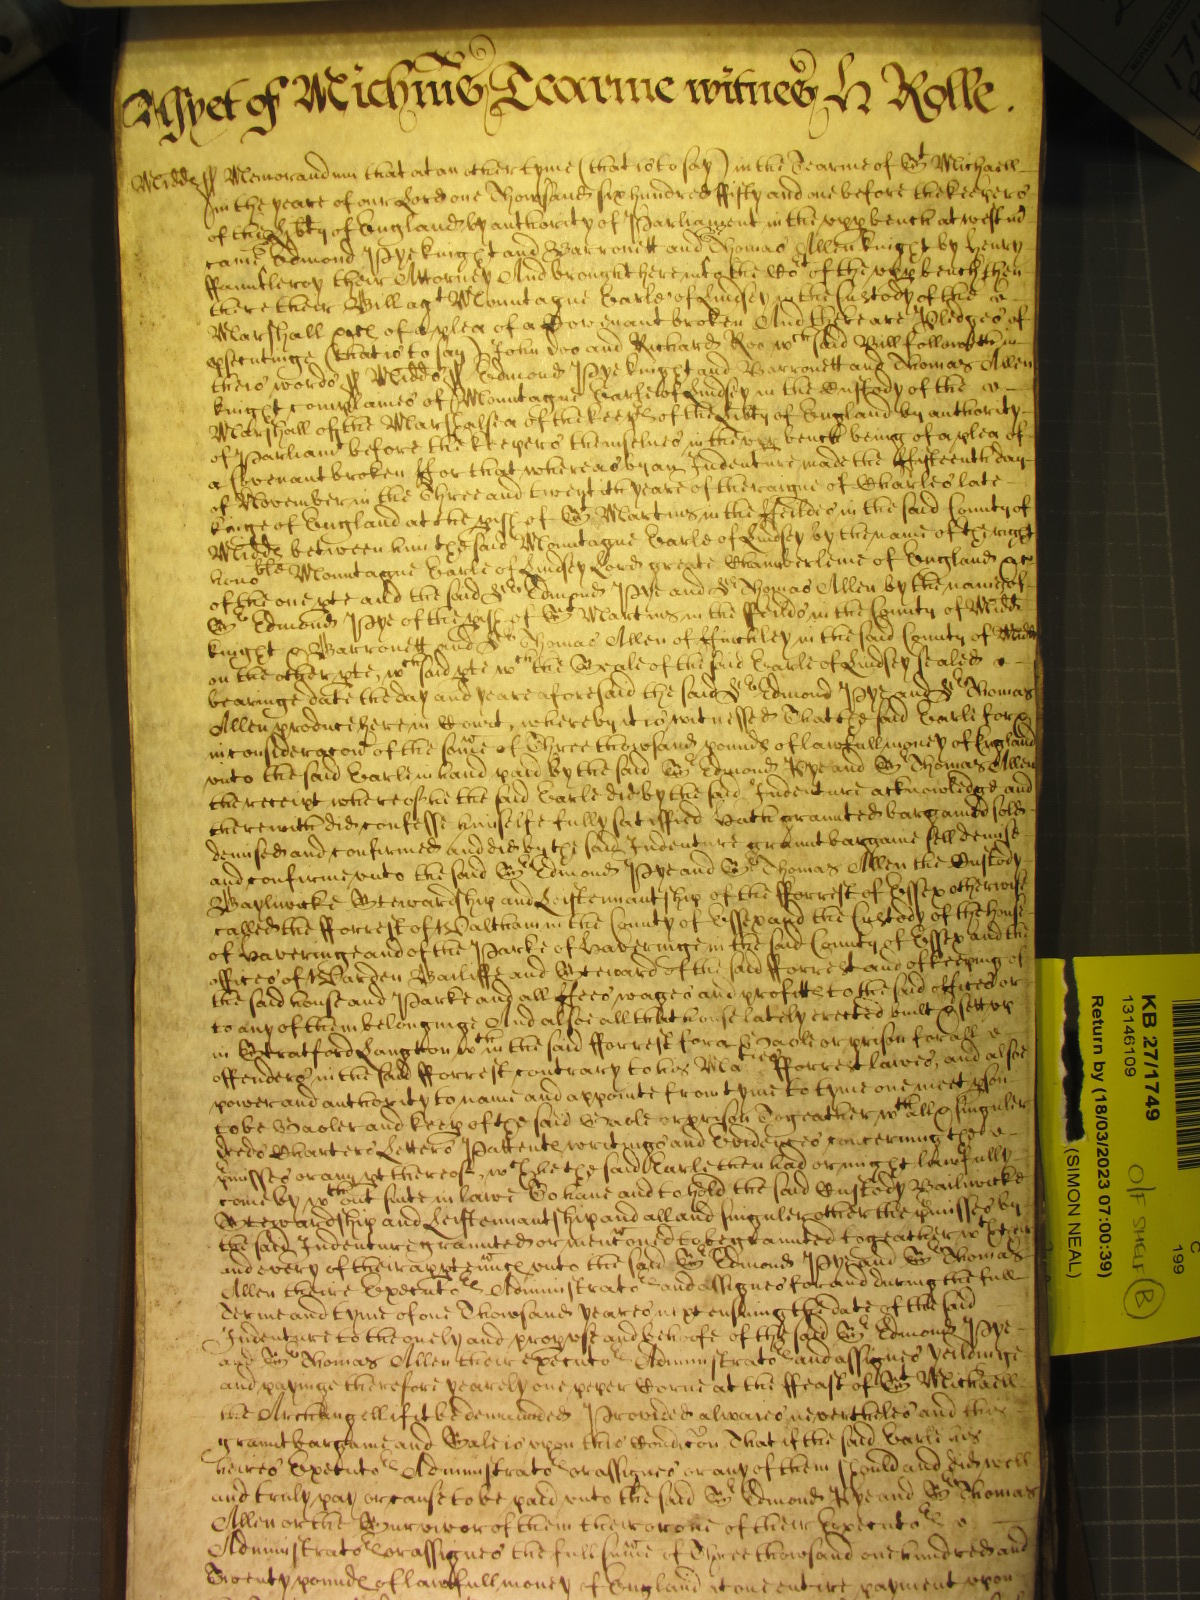 As yet of Michmas Tearme witnes H Rolle.
Midds ss Memorandum that at an other tyme (that is to say) in the Tearme of St Michaell
in the yeare of our Lord one Thowsand six hundred fifty and one before the keepers
of the libty of England by authority of Parliament in the upp bench at westm
came Edmond Pye knight and Barronett and Thomas Allen knight by Henry
ffauntleroy their Attorney And brought here into the Cot of the upp bench then
there their Bill agt Mountague Earle of Lindsey in the Custody of the
Marshall &c of a plea of a Covenant broken And there are Pledges of
psecutinge (that is to say) John Doo and Richard Roo wch said Bill followeth in
theis words ss Midds ss Edmond Pye knight and Barronett and Thomas Allen
knight complaines of Mountague Earle of Lindsey in the Custody of the
Marshall of the Marshalsea of the keeps of the Libty of England by authority
of Parliamt before the keepers themselves in the upp bench being of a plea of
a Covenant broken ffor that whereas by an Indenture made the fifteenth day
of November in the Three and twentith yeare of the raigne of Charles late
kinge of England at the pish of St Martins in the ffeilds in the said County of
Midds between him the said Mountague Earle of Lindsey by the name of the right
honoble Mountague Earle of Lindsey Lord greate Chamberleine of England &c
of the one pte and the said Sr Edmond Pye and Sr Thomas Allen by the name of
Sr Edmond Pye of the pish of St Martins in the ffeilds in the County of Midds
knight & Barronett and Sr Thomas Allen of ffinchley in the said County of Midds
on the other pte, wch said pte wth the Seale of the said Earle of Lindsey sealed
bearinge date the day and yeare aforesaid the said Sr Edmond Pye and Sr Thomas
Allen produce here in Court, whereby it is witnessed That the said Earle for &
in consideracon of the sume of Three thowsand pounds of lawfull money of England
unto the said Earle in hand paid by the said Sr Edmond Pye and Sr Thomas Allen
the receipt whereof he the said Earle did by the said Indenture acknowledge and
therewith did confesse himselfe fully satisfied Hath graunted bargained sold
demised and confirmed and did by the said Indenture graunt bargaine sell demise
and confirme unto the said Sr Edmond Pye and Sr Thomas Allen the Custody
Bayliwicke Stewardship and Leiftennantship of the fforrest of Essex otherwise
called the fforrest of Waltham in the County of Essex and the Custody of the house
of Haveringe and of the Parke of Haveringe in the said County of Essex and the
offices of Warden Bailiffe and Steward of the said fforrest and of keeping of
the said house and Parke and all ffees wages and profitts to the said offices or
to any of them belonginge And alsoe all that house lately erected built & sett up
in Stratford Langton wthin the said fforrest for a Gaole or prison for all
offenders in the said fforrest contrary to his Maties fforrest lawes, and alsoe
power and authority to name and appointe from tyme to tyme one meet pson
to be Gaoler and keep of the said Gaole or prison Togeather wth all & singuler
deeds Charters Letters Pattents writings and Evidences concerning the
pmisses or any pt thereof, wch he the said Earle then had or might lawfully
come by wthout suite in lawe To have and to hold the said Custody Bailiwicke
Stewardship and Leiftennantship and all and singuler other the pmisses by
the said Indenture graunted or mentoned to be graunted togeather wth their
and every of their apptenncs unto the said Sr Edmond Pye and Sr Thomas
Allen theire Executors Administrators and assignes for and during the full
Terme and tyme of one Thowsand yeares next ensuing the date of the said
Indenture to the onely and propper use and behoofe of the said Sr Edmond Pye
and Sr Thomas Allen their executors Administrators and assignes Yeildinge
and payinge therefore yearely one peper Corne at the ffeast of St Michaell
the Archangell if it be demaunded Provided alwaies nevertheles and this
graunt bargaine and Sale is upon this Condicon That if the said Earle his
heires Executors Administrators or assignes or any of them should and did well
and truly pay or cause to be paid unto the said Sr Edmond Pye and Sr Thomas
Allen or the Survivor of them their or one of their Executors
Administrators or assignes the full sume of Three thowsand one hundred and
Twenty pounds of lawfull money of England at one entire payment upon
KB 27/1749
13146109
Return by (18/03/2023 07:00:39)
(SIMON NEAL)
O/F SHELF
B
199